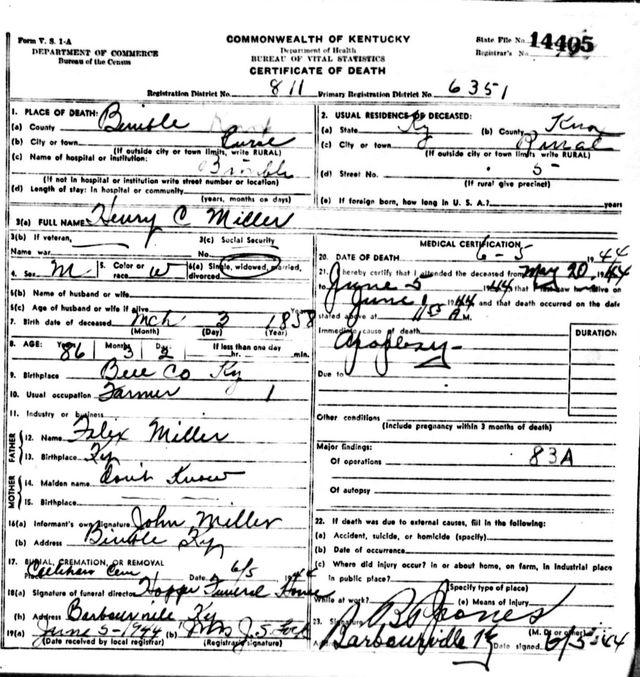 Form V. S. 1-A
DEPARTMENT OF COMMERCE
Bureau of the Census
COMMONWEALTH OF KENTUCKY
Department of Health
BUREAU OF VITAL STATISTICS
CERTIFICATE OF DEATH
State File No. 14405
Registrar's No.
Registration District No. 811 Primary Registration District No. 6351
1. PLACE OF DEATH: Bimble
(a) County
(b) City or town Rural
(If outside city or town limits, write RURAL)
(c) Name of hospital or institution: Bimble
(If not in hospital or institution write street number or location)
(d) Length of stay: In hospital or community
(years, months or days)
2. USUAL RESIDENCE OF DECEASED:
(a) State Ky (b) County Knox
(c) City or town Rural
(If outside city or town limits write RURAL)
(d) Street No. 5
(If rural give precinct)
(e) If foreign born, how long in U. S. A.? years
3(a) FULL NAME Henry C Miller
3(b) If veteran,
Name war
3(c) Social Security
No.
4. Sex M 5. Color or race W 6(a) Single, widowed, married, divorced
6(b) Name of husband or wife
6(c) Age of husband or wife if alive
7. Birth date of deceased Mch 3 1858
(Month) (Day) (Year)
8. AGE: Years 86 Months 3 Days 2 If less than one day
hr. min.
9. Birthplace Bell Co Ky
10. Usual occupation Farmer 1
11. Industry or business
FATHER
12. Name Felix Miller
13. Birthplace Ky
MOTHER
14. Maiden name Don't Know
15. Birthplace
16(a) Informant's own signature John Miller
(b) Address Bimble Ky
17. BURIAL, CREMATION, OR REMOVAL
Place Cem Date 6/5 1944
18(a) Signature of funeral director Hopper Funeral Home
(b) Address Barbourville Ky
19(a) June 5-1944 (b) Mrs J. S.
(Date received by local registrar) (Registrar's signature)
MEDICAL CERTIFICATION
20. DATE OF DEATH 6-5 1944
21. I hereby certify that I attended the deceased from May 20, 1944
to June 5 1944 that I last saw alive on
June 1 1944 and that death occurred on the date
stated above at 11 55 A M.
Immediate cause of death
Apoplexy
DURATION
Due to
Other conditions
(Include pregnancy within 3 months of death)
Major findings:
Of operations 83A
Of autopsy
22. If death was due to external causes, fill in the following:
(a) Accident, suicide, or homicide (specify)
(b) Date of occurrence
(c) Where did injury occur? in or about home, on farm, in industrial place
in public place?
(Specify type of place)
While at work? (e) Means of injury
23. Signature Jones
(M. D. or other)
Barbourville Ky Date signed 6/5/44